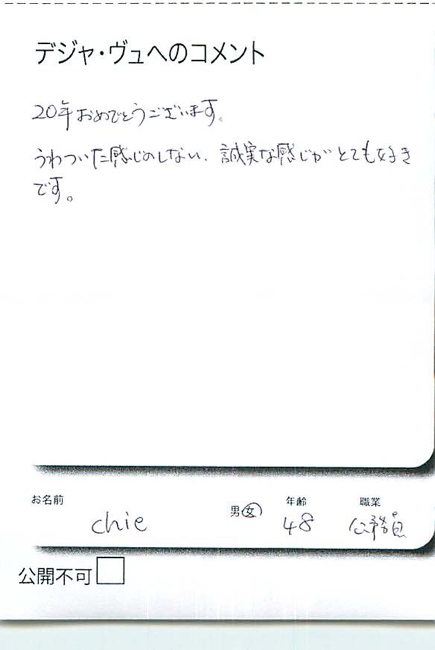 デジャ・ヴュへのコメント
20年おめでとうございます。
うわついた感じのしない、誠実な感じがとても好き
です。
お名前 男女 年齢 職業
chie 48 公務員
公開不可